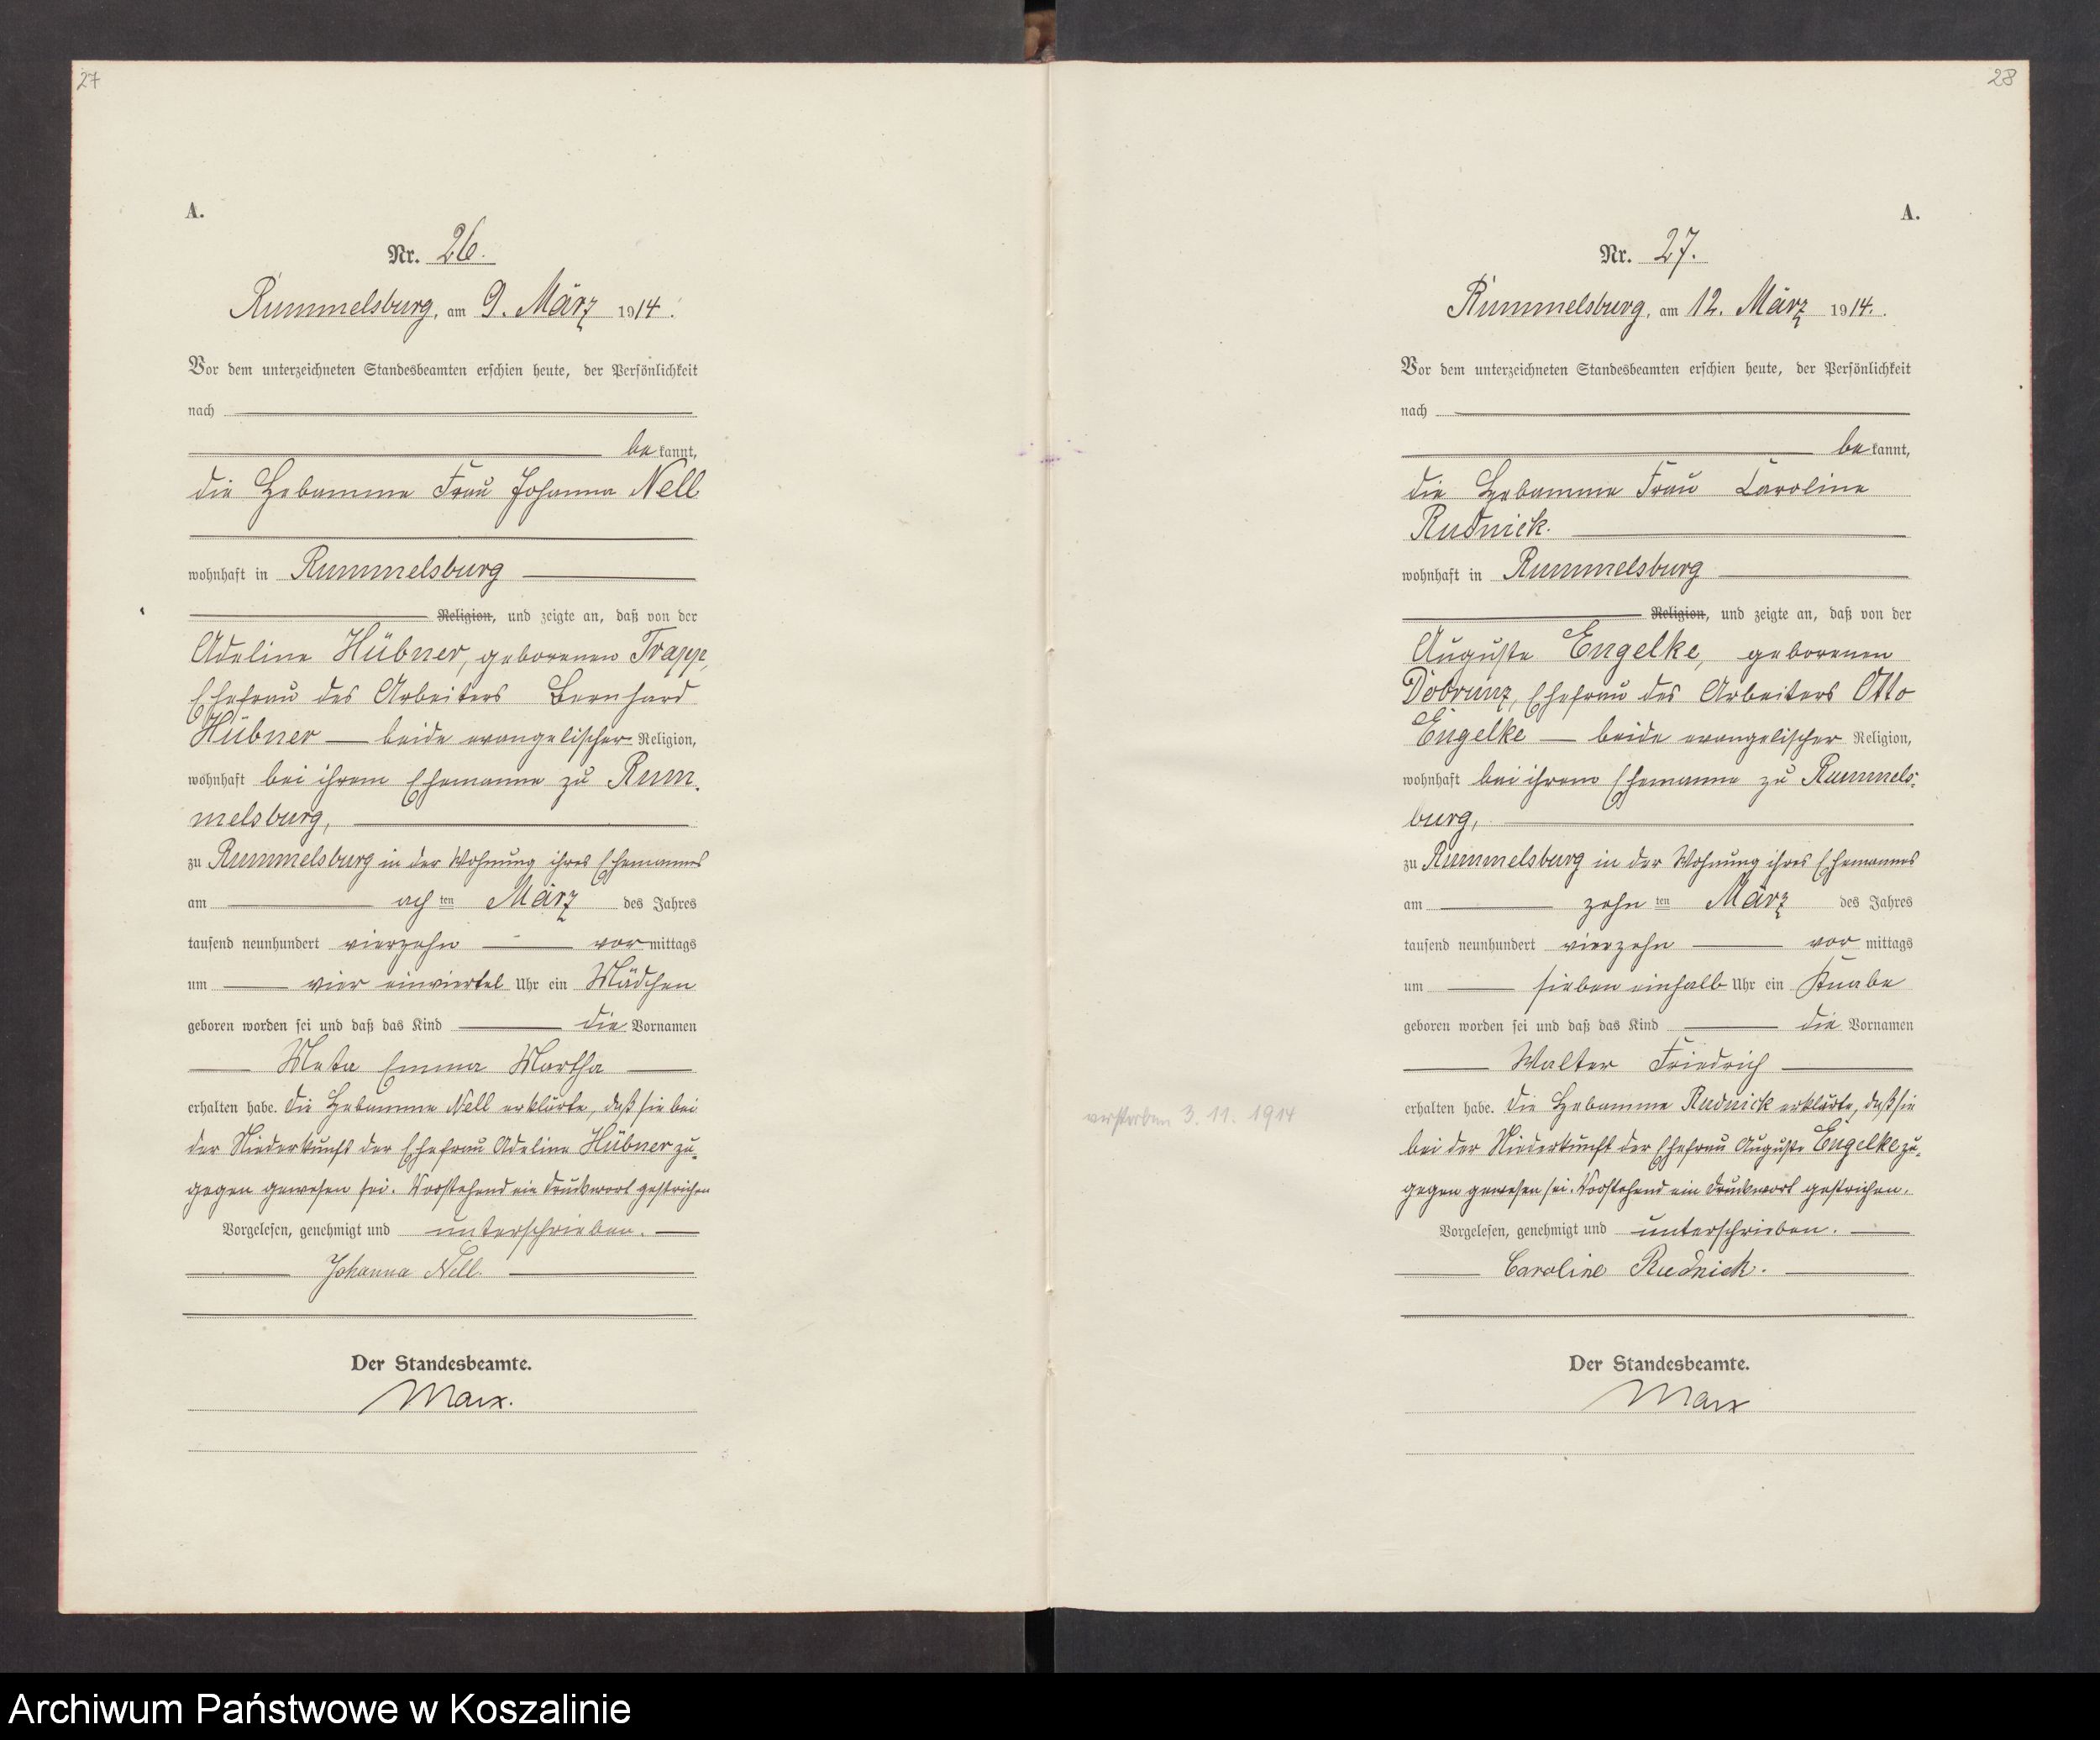 27
A.
Nr. 26.
Rummelsburg, am 9. März 1914.
Vor dem unterzeichneten Standesbeamten erschien heute, der Persönlichkeit
nach
bekannt,
die Hebamme Frau Johanna Nell
wohnhaft in Rummelsburg
Religion, und zeigte an, daß von der
Adeline Hübner, geborenen Trapp,
Ehefrau des Arbeiters Bernhard
Hübner — beide evangelischer Religion,
wohnhaft bei ihrem Ehemanne zu Rum-
melsburg,
zu Rummelsburg in der Wohnung ihres Ehemannes
am achten März des Jahres
tausend neunhundert vierzehn vormittags
um vier einviertel Uhr ein Mädchen
geboren worden sei und daß das Kind die Vornamen
Meta Emma Martha
erhalten habe. Die Hebamme Nell erklärte, daß sie bei
der Niederkunft der Ehefrau Adeline Hübner zu-
gegen gewesen sei. Vorstehend ein Druckwort gestrichen
Vorgelesen, genehmigt und unterschrieben.
Johanna Nell.
Der Standesbeamte.
Marx.
28
A.
Nr. 27.
Rummelsburg, am 12. März 1914.
Vor dem unterzeichneten Standesbeamten erschien heute, der Persönlichkeit
nach
bekannt,
die Hebamme Frau Caroline
Rudnick.
wohnhaft in Rummelsburg
Religion, und zeigte an, daß von der
Auguste Engelke, geborenen
Dobrunz, Ehefrau des Arbeiters Otto
Engelke — beide evangelischer Religion,
wohnhaft bei ihrem Ehemanne zu Rummels-
burg,
zu Rummelsburg in der Wohnung ihres Ehemannes
am zehnten März des Jahres
tausend neunhundert vierzehn vormittags
um sieben einhalb Uhr ein Knabe
geboren worden sei und daß das Kind die Vornamen
Walter Friedrich
erhalten habe. Die Hebamme Rudnick erklärte, daß sie
verstorben 3. 11. 1914
bei der Niederkunft der Ehefrau Auguste Engelke zu-
gegen gewesen sei. Vorstehend ein Druckwort gestrichen.
Vorgelesen, genehmigt und unterschrieben.
Caroline Rudnick.
Der Standesbeamte.
Marx
Archiwum Państwowe w Koszalinie